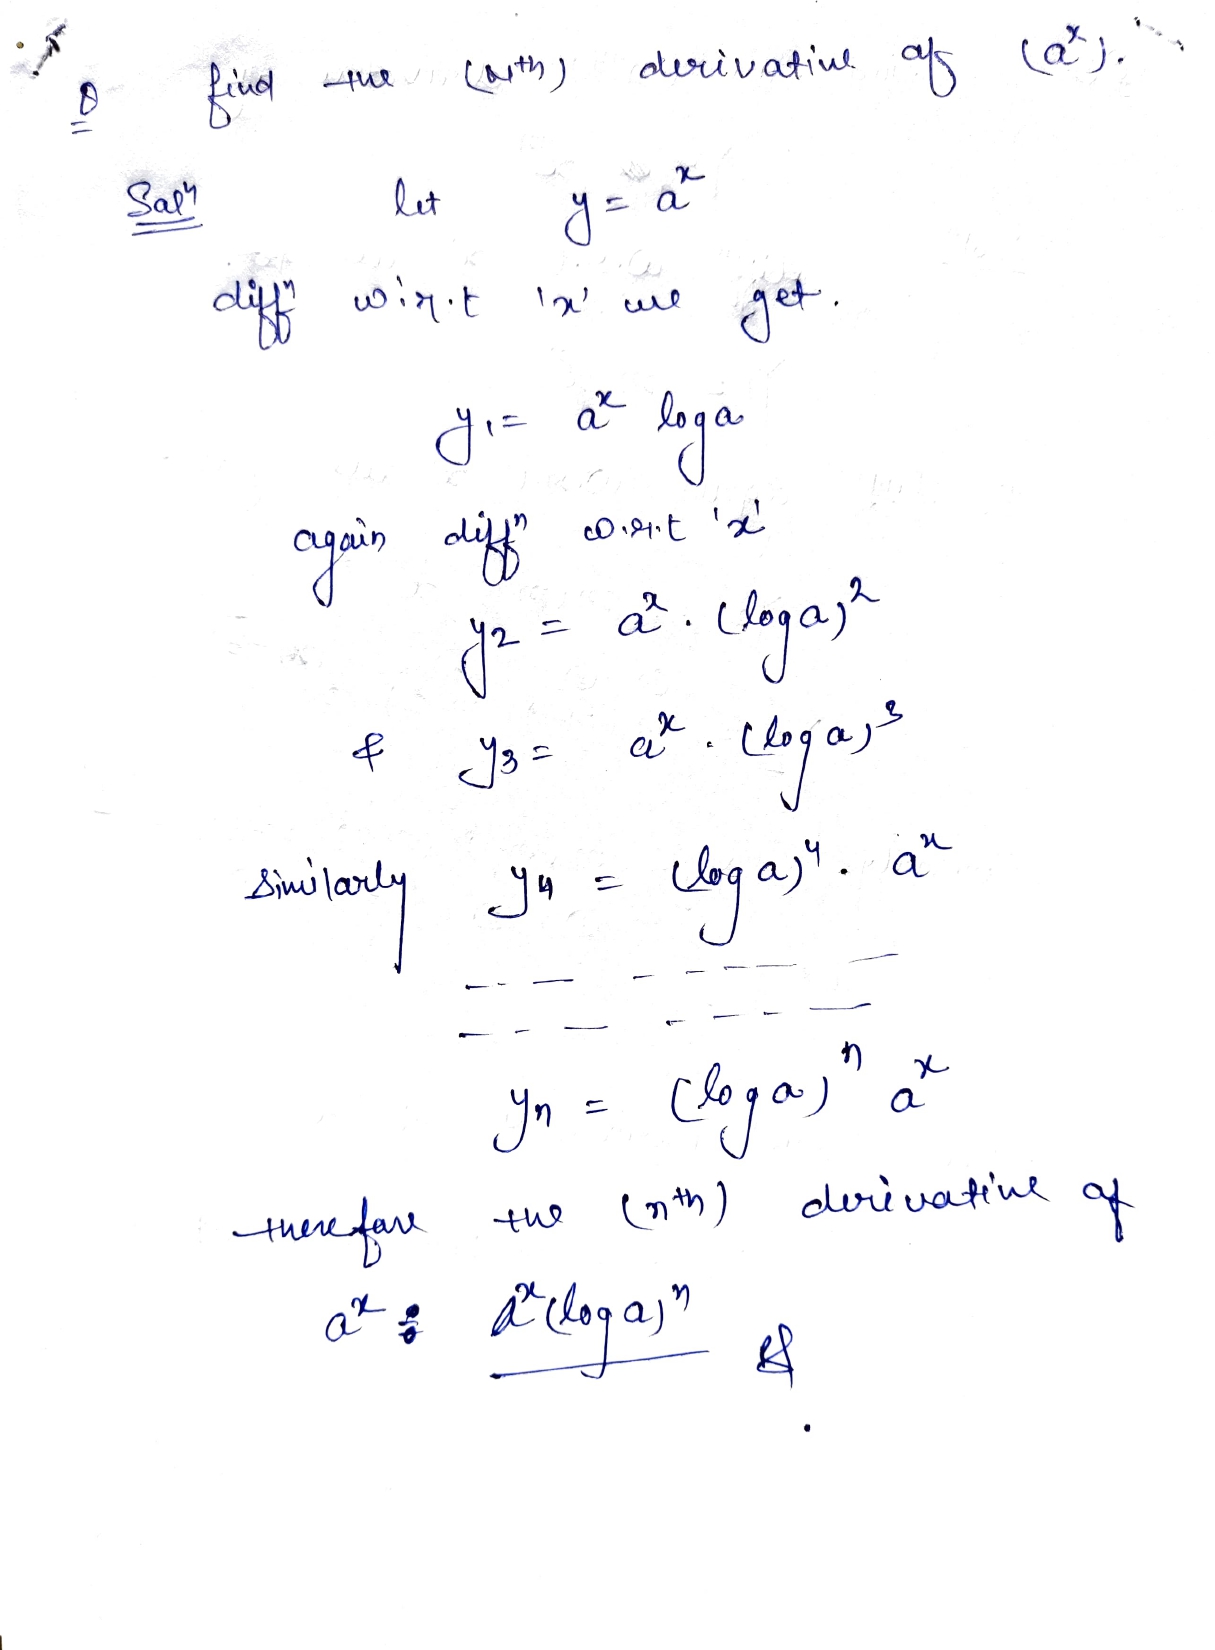 Q find the (nth) derivative of (aˣ).
Solⁿ let y = aˣ
diffⁿ w.r.t 'x' we get.
y₁ = aˣ log a
again diffⁿ w.r.t 'x'
y₂ = aˣ . (log a)²
& y₃ = aˣ . (log a)³
similarly y₄ = (log a)⁴ . aˣ
yₙ = (log a)ⁿ aˣ
therefore the (nth) derivative of
aˣ = aˣ (log a)ⁿ